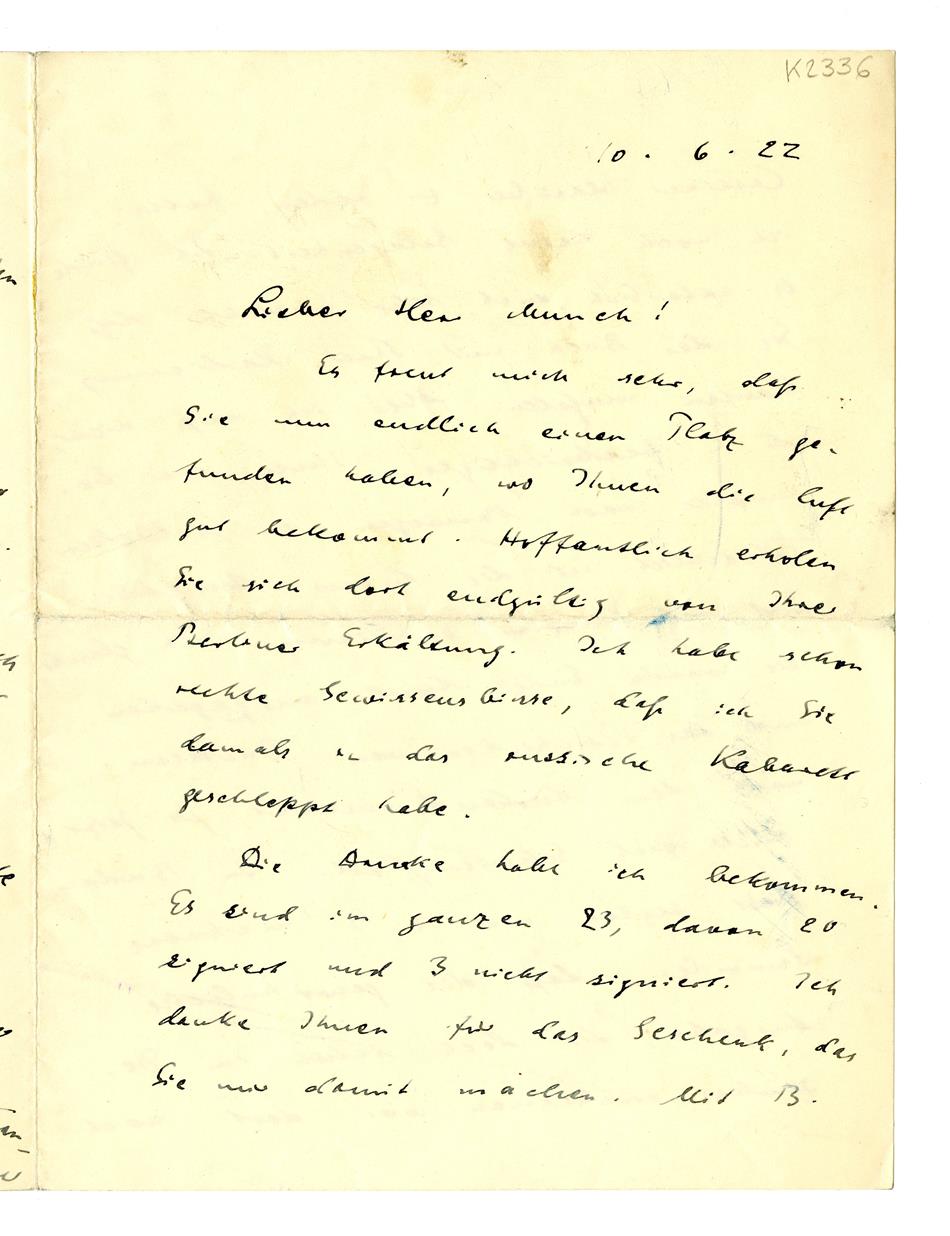 K2336
10. 6. 22
Lieber Herr Munch!
Es freut mich sehr, daß
Sie nun endlich einen Platz ge-
funden haben, wo Ihnen die Luft
gut bekommt. Hoffentlich erholen
Sie sich dort endgültig von Ihrer
Berliner Erkältung. Ich habe schon
rechte Gewissensbisse, daß ich Sie
damals in das russische Kabarett
geschleppt habe.
Die Drucke habe ich bekommen.
Es sind im ganzen 23, davon 20
signiert und 3 nicht signiert. Ich
danke Ihnen für das Geschenk, das
Sie mir damit machen. Mit B.